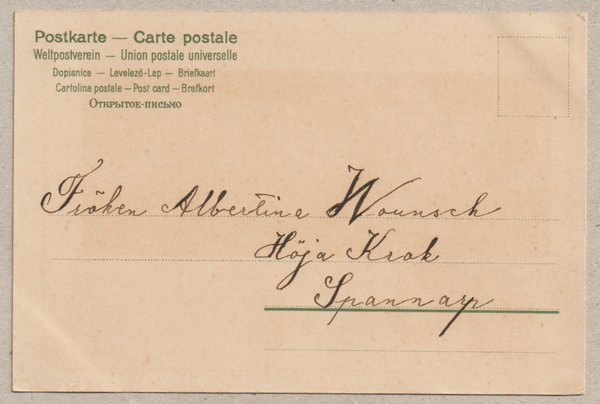 Postkarte — Carte postale
Weltpostverein — Union postale universelle
Dopisnice — Levelező-Lap — Briefkaart
Cartolina postale — Post card — Brefkort
Открытое-письмо
Fröken Albertina Wounsch
Höja Krok
Spannarp